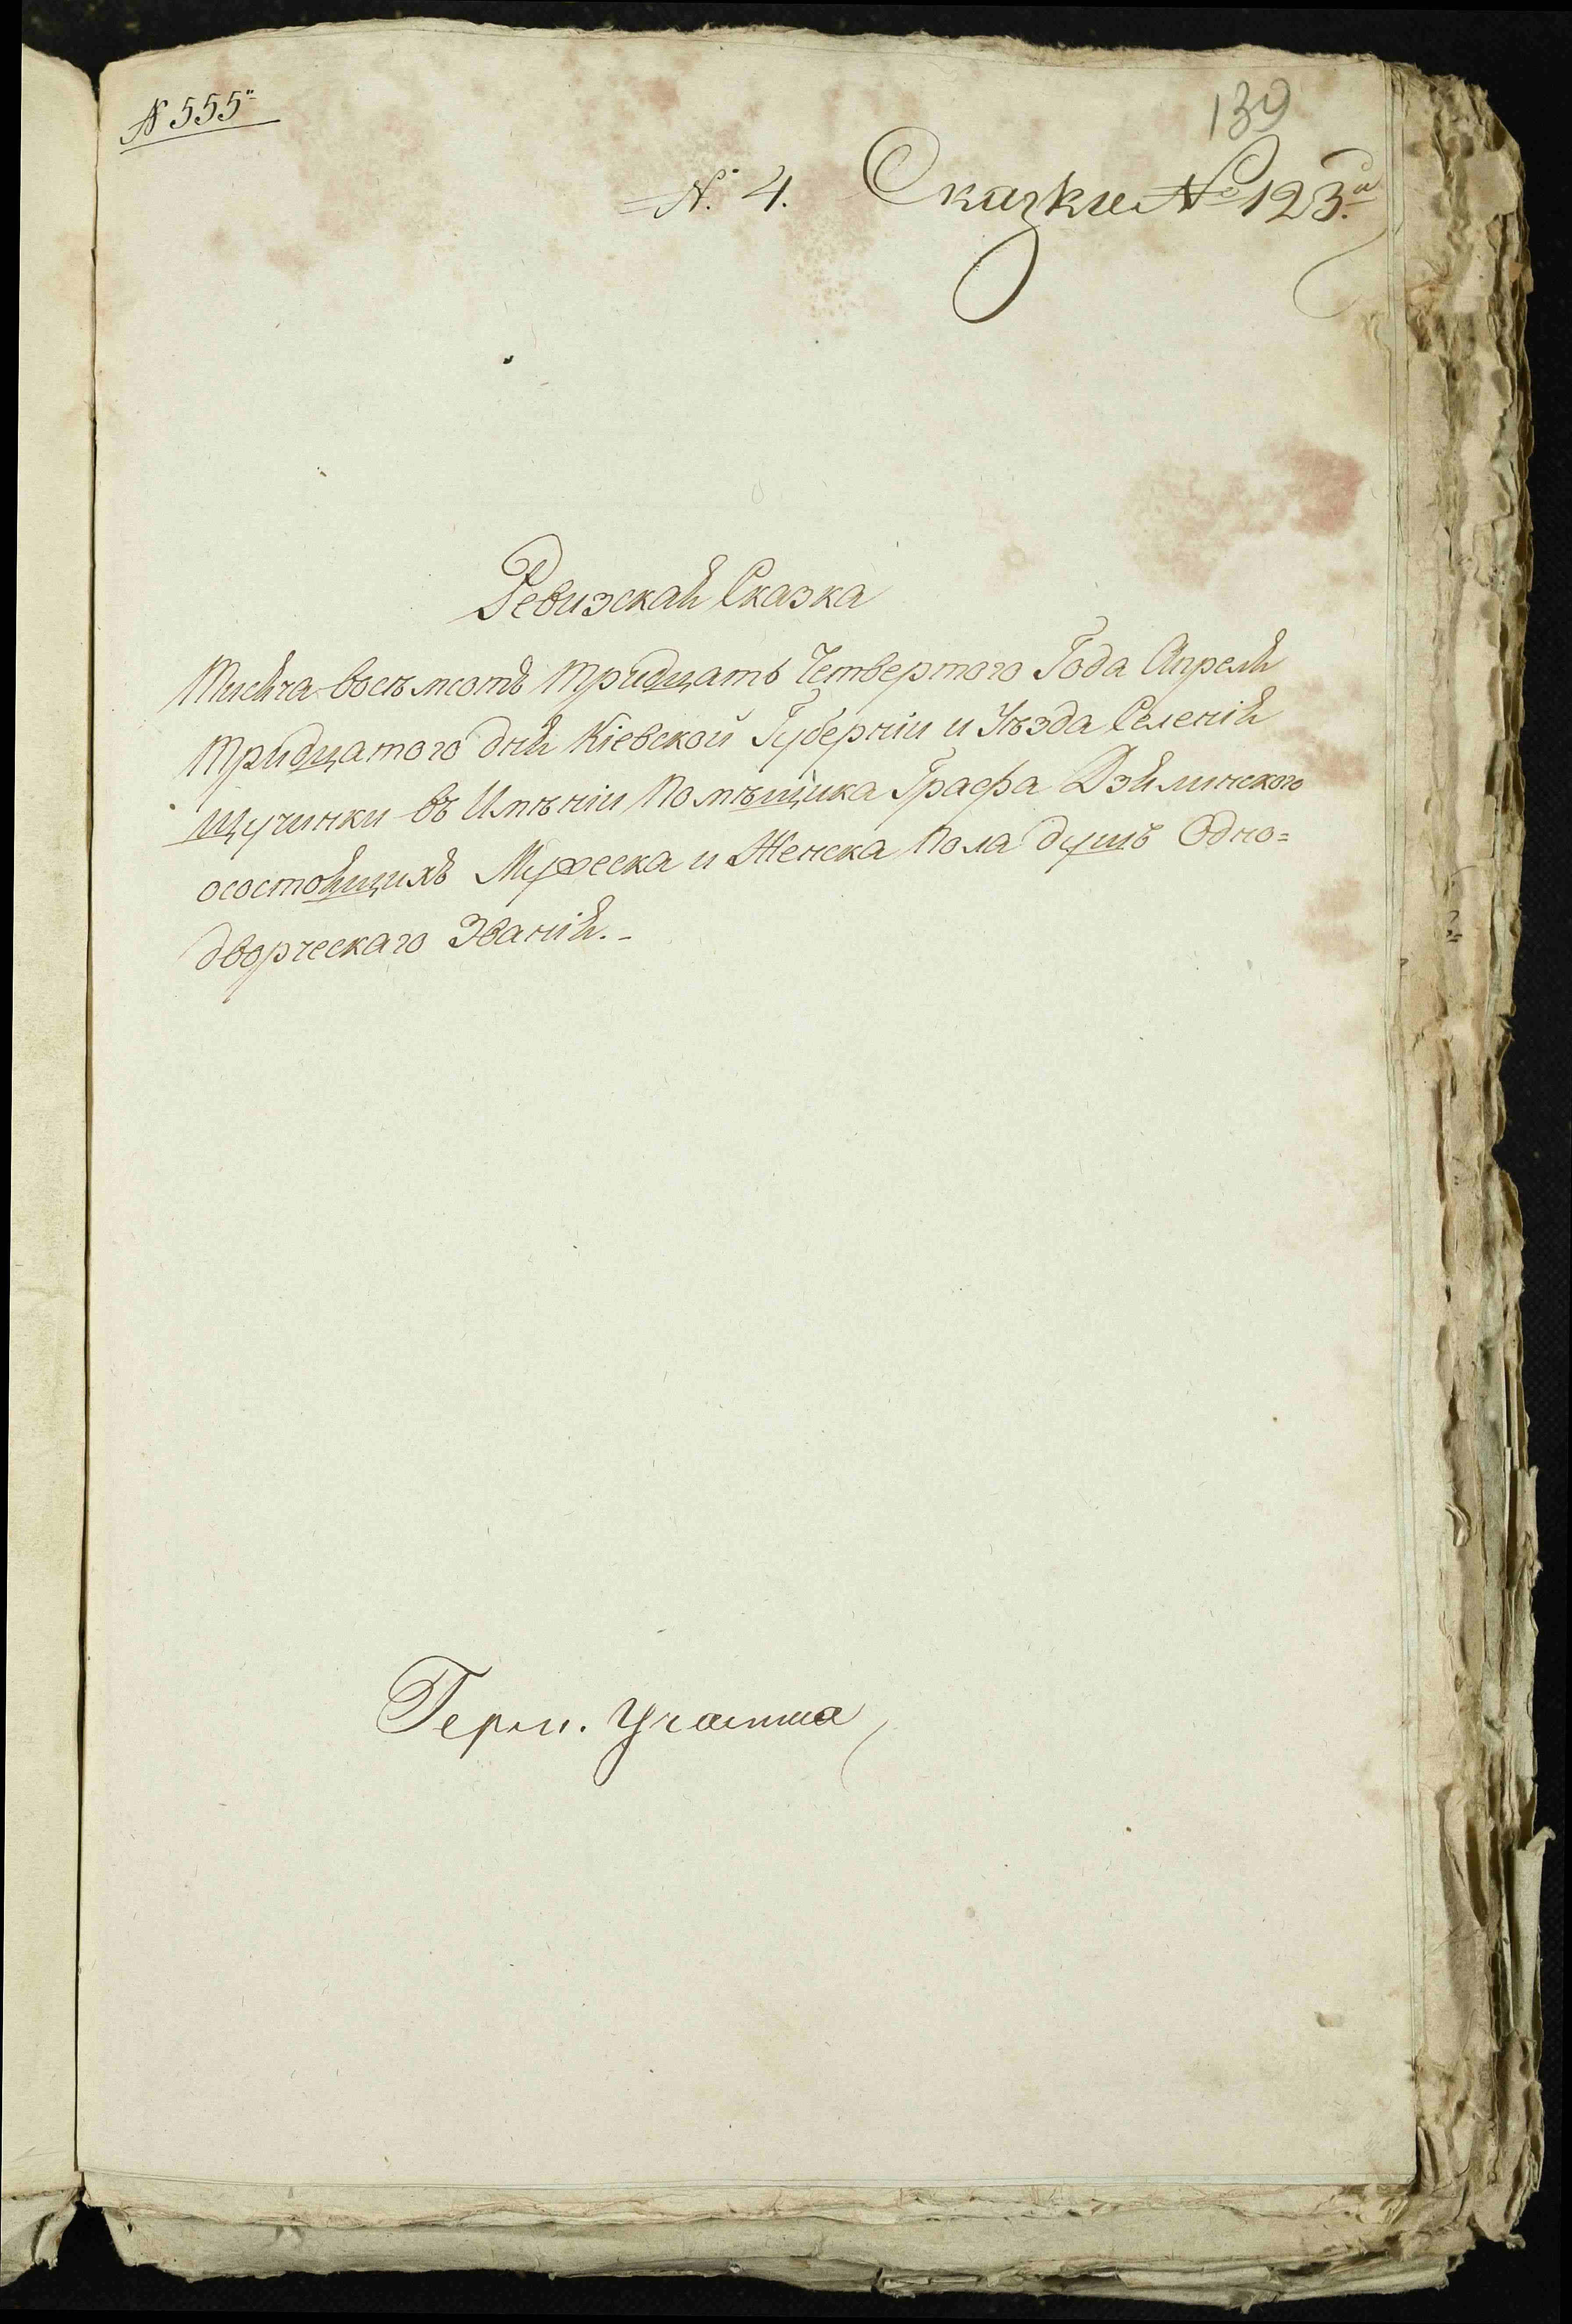 N 555
139
N. 4. Сказки № 123.
Ревизская Сказка
Тысяча восемсотъ тридцать Четвертого Года Апреля
тридцатого дня Кіевской Губерніи и Уѣзда Селенія
Щучинки въ Имѣніи Помѣщика Графа Дзялинского
осостоящихъ Мужеска и Женска пола душъ Одно=
дворческаго Званія.
Участка